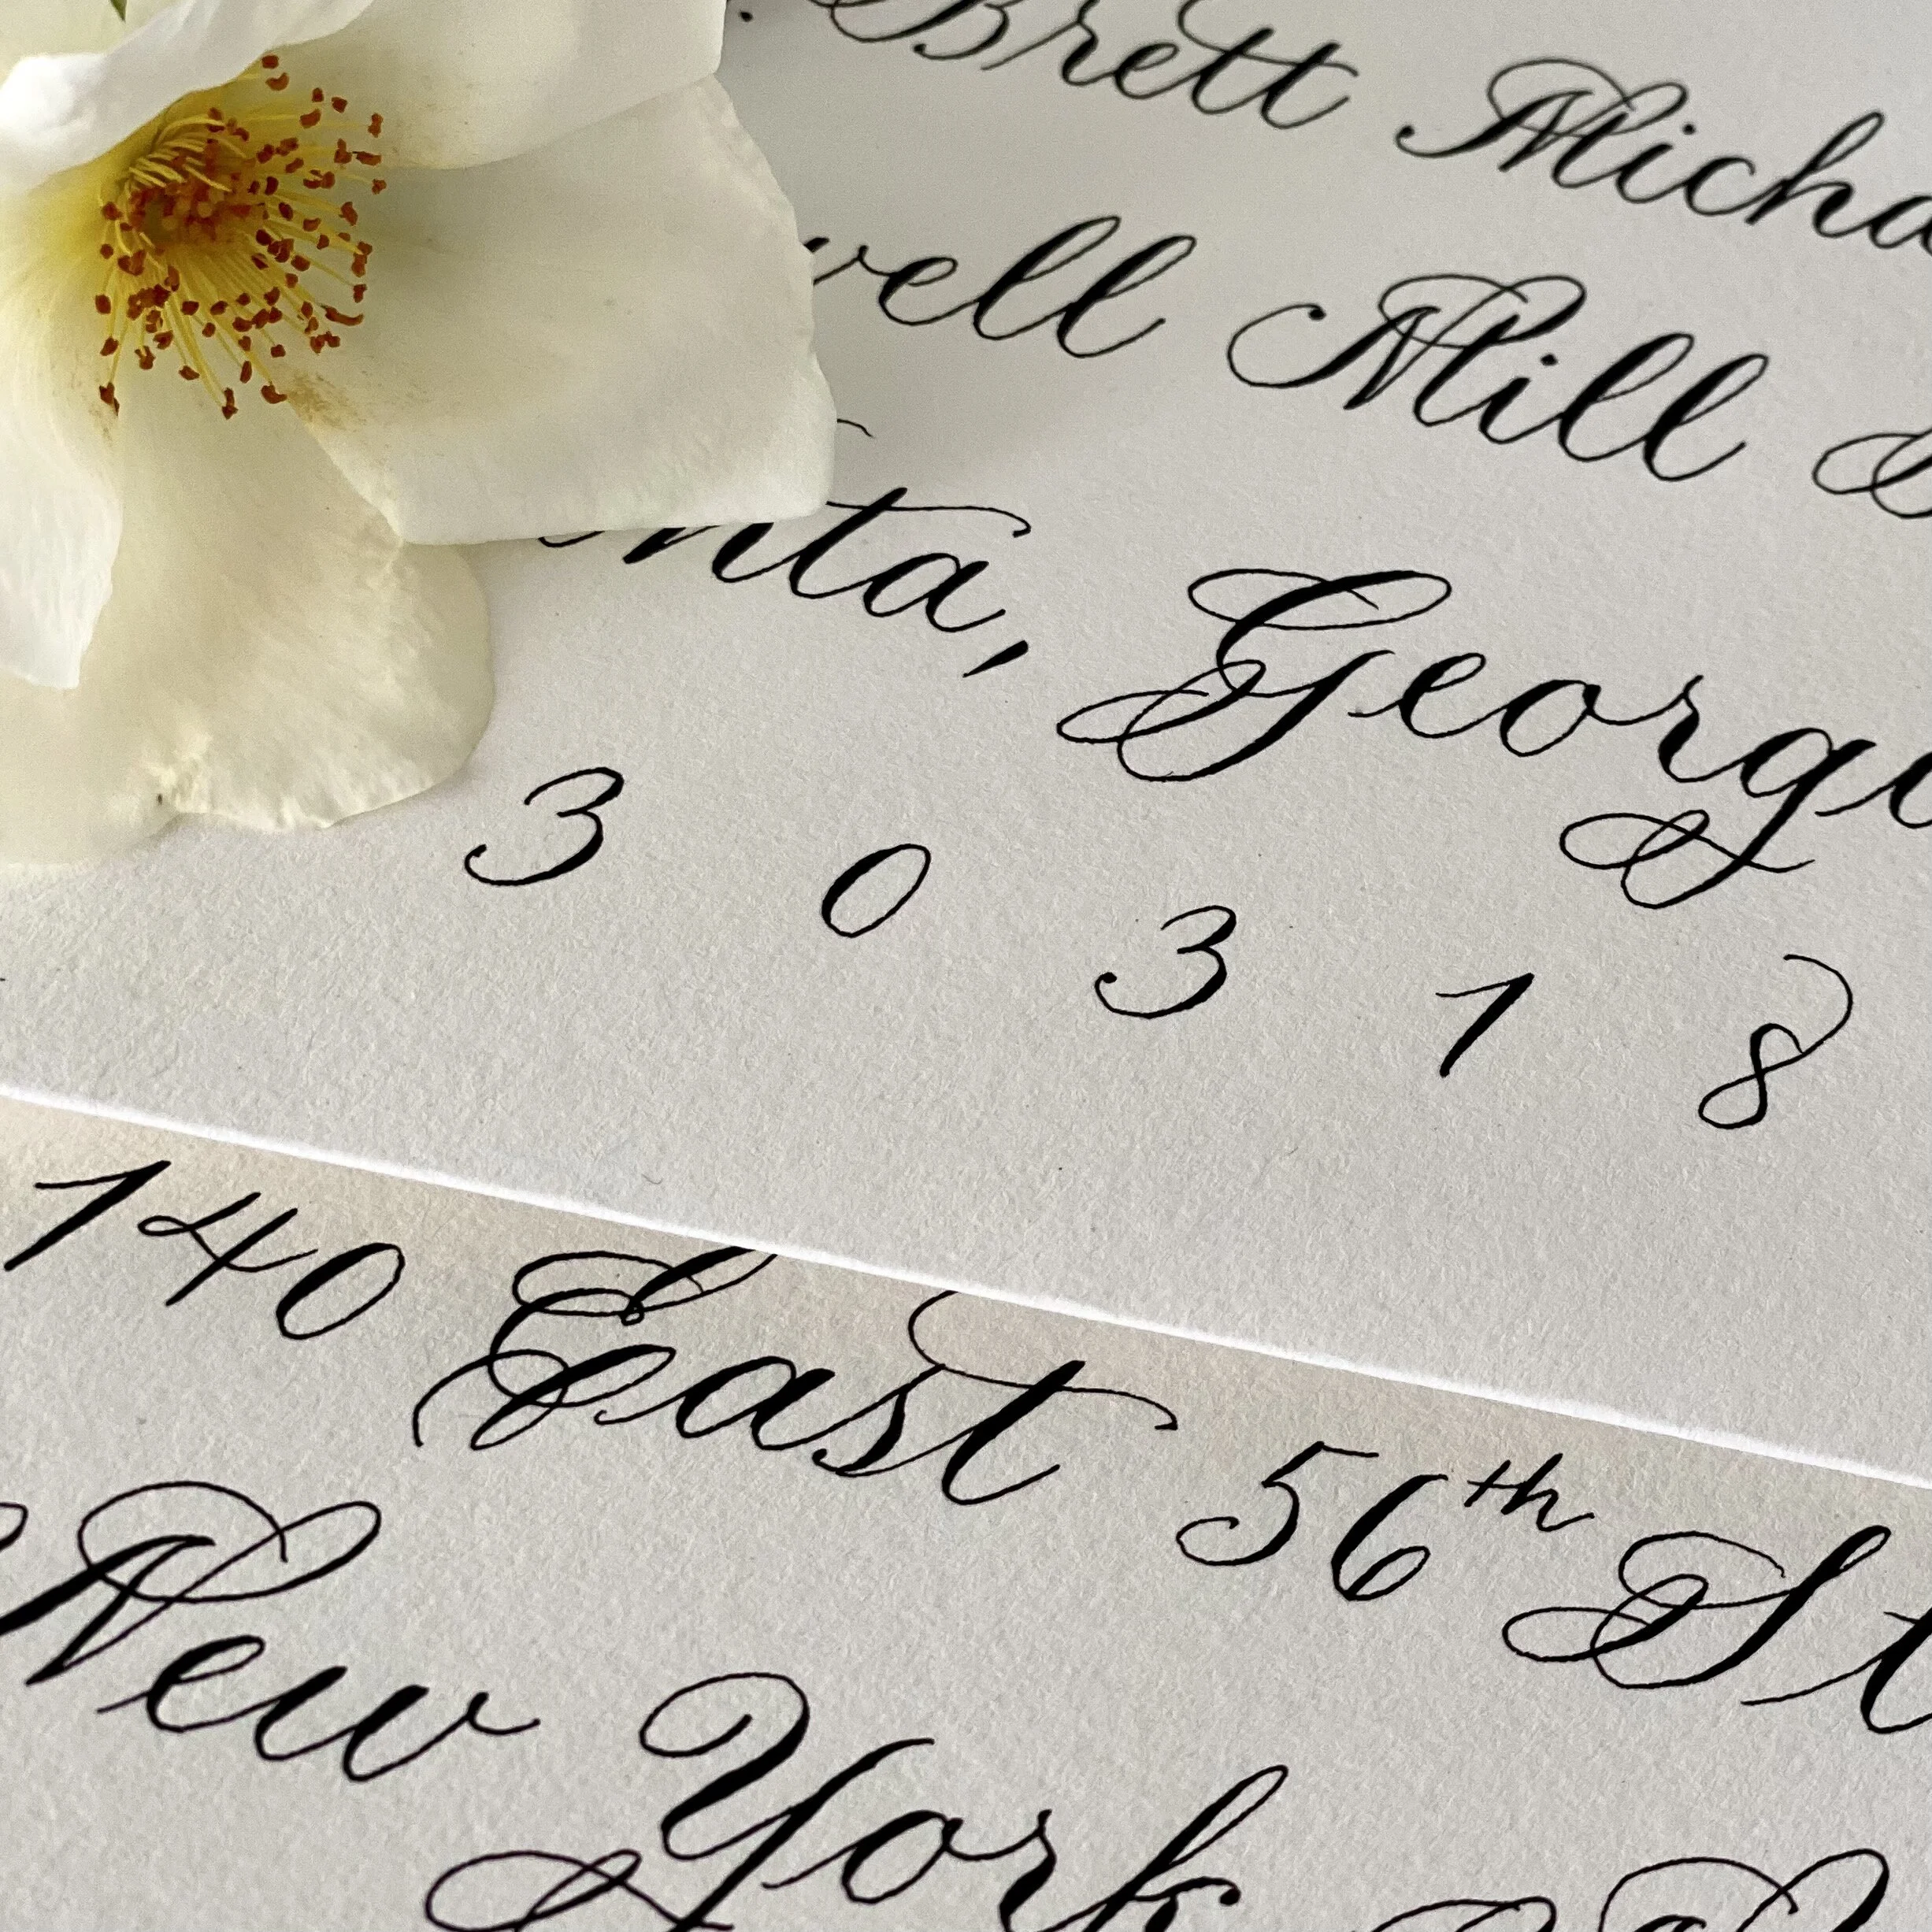 Brett Micha
well Mill
nta, Georgi
3 0 3 1 8
140 East 56th St
New York